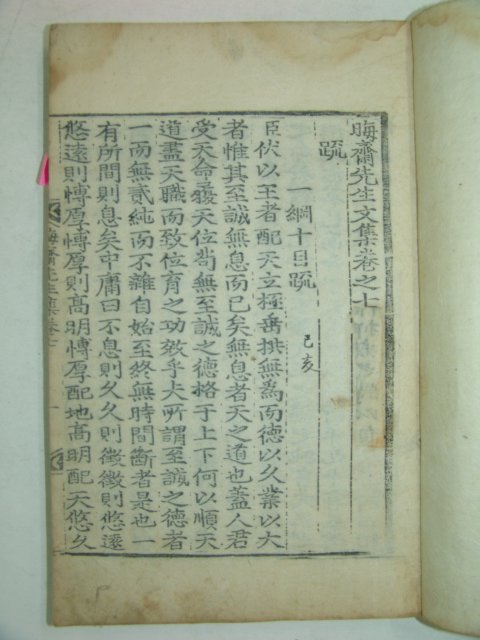 晦齋先生文集卷之七
疏
一綱十目疏 己亥
臣伏以王者配天立極垂拱無爲而德以久業以大
者惟其至誠無息而已矣無息者天之道也蓋人君
受天命履天位苟無至誠之德格于上下何以順天
道盡天職而致位育之功效乎夫所謂至誠之德者
一而無貳純而不雜自始至終無時間斷者是也一
有所間則息矣中庸曰不息則久久則徵徵則悠遠
悠遠則慱厚慱厚則高明慱厚配地高明配天悠久
晦齋先生集卷七
一